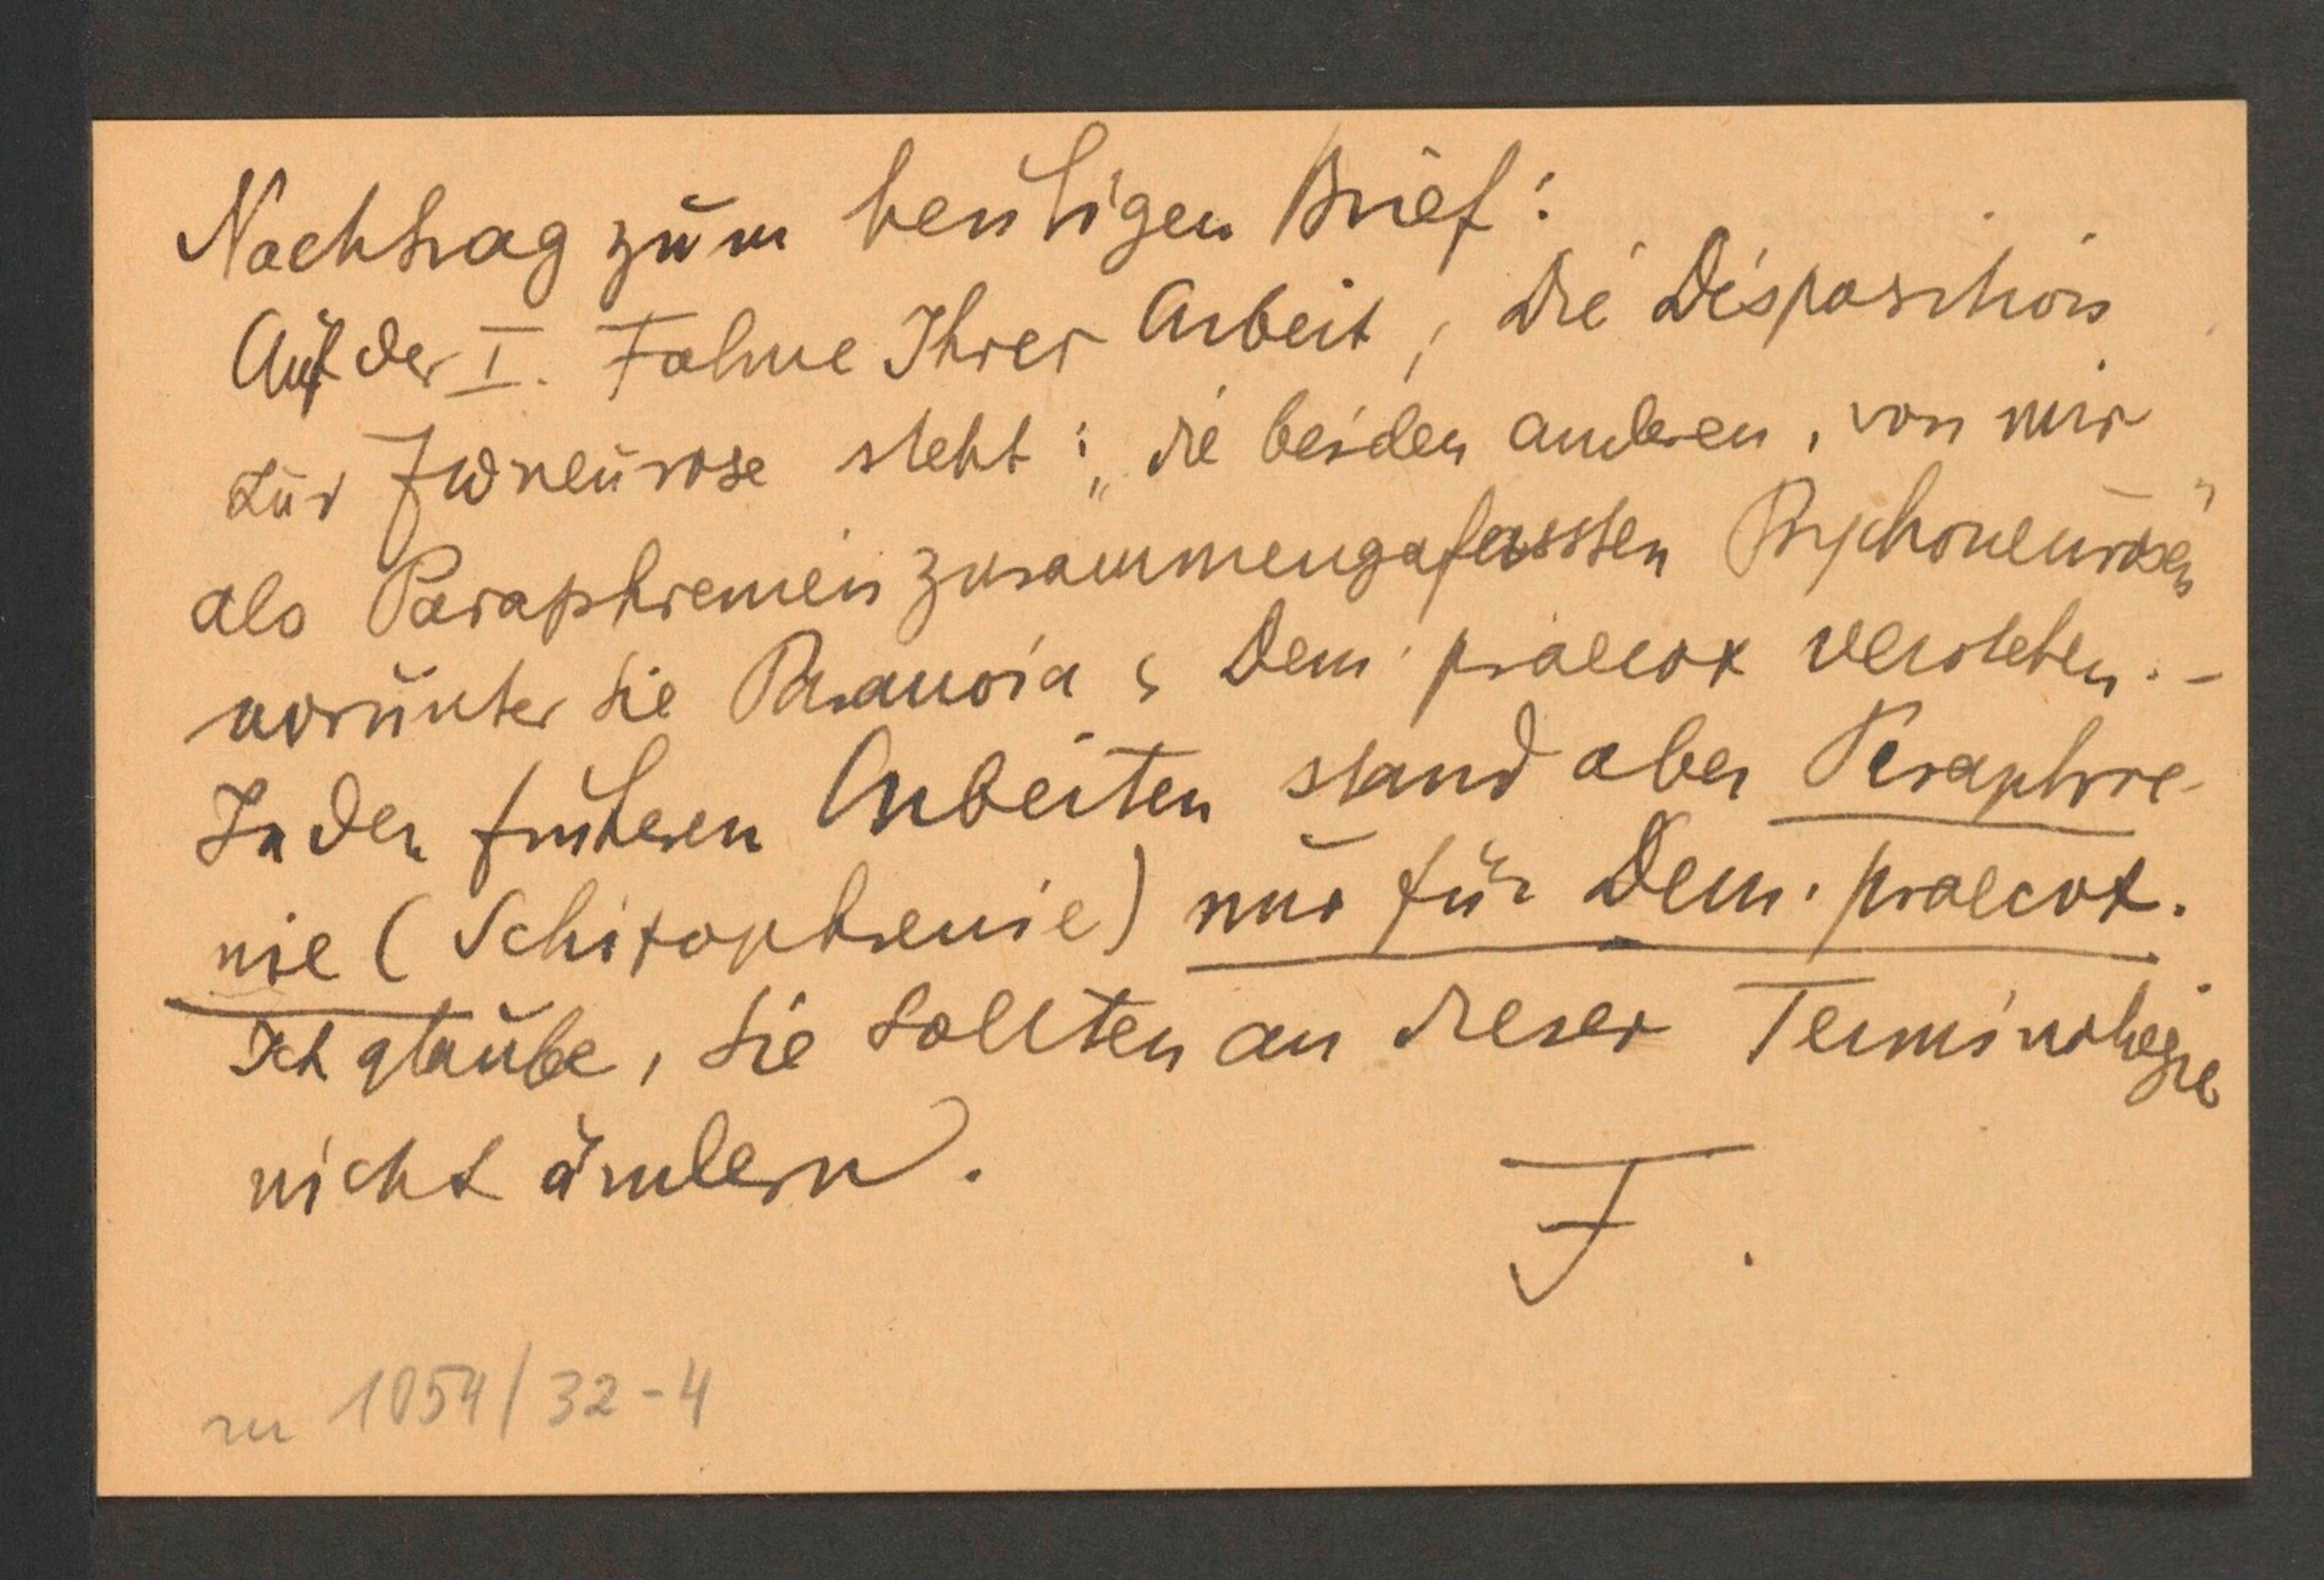 Nachtrag zum heutigen Brief:
Auf der I. Fahne Ihrer Arbeit, die Disposition
zur Zwneurose steht: „die beiden anderen, von mir
als Paraphrenien zusammengefassten Psychoneurosen"
worunter Sie Paranoia & Dem. praecox verstehen. –
In den früheren Arbeiten stand aber Paraphre-
nie (Schizophrenie) nur für Dem. praecox.
Ich glaube, Sie sollten an dieser Terminologie
nicht ändern.
F.
zu 1054/32-4